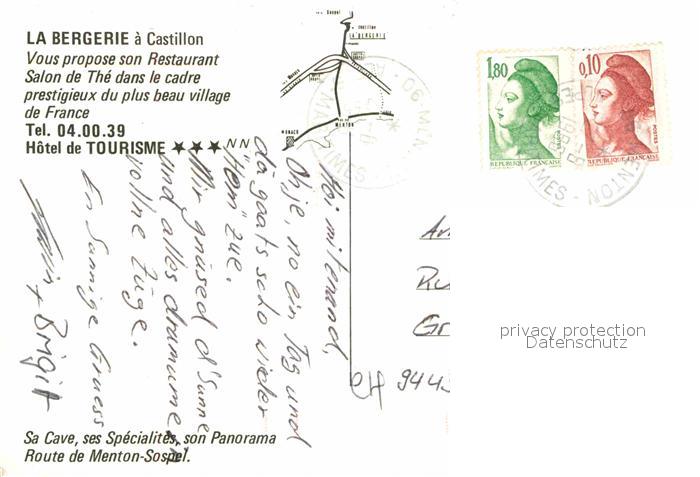 LA BERGERIE à Castillon
Vous propose son Restaurant
Salon de Thé dans le cadre
prestigieux du plus beau village
de France
Tel. 04.00.39
Hôtel de TOURISME ★★★NN
Hoi mitenand,
Ohje, no ein Tag und
då gaats scho wieder
"Hem" zue.
Mir gnüssed d'Sunne
und alles drumume in
vollne Züge.
En Sunnige Gruess
+ Brigit
Sa Cave, ses Spécialités, son Panorama
Route de Menton-Sospel.
Sospel
Castillon
LA BERGERIE
MONACO
MENTON
06 MENTON
MARITIMES
1,80
REPUBLIQUE FRANÇAISE
0,10
POSTES
REPUBLIQUE FRANÇAISE
06 - MENTON
CH 944
privacy protection
Datenschutz